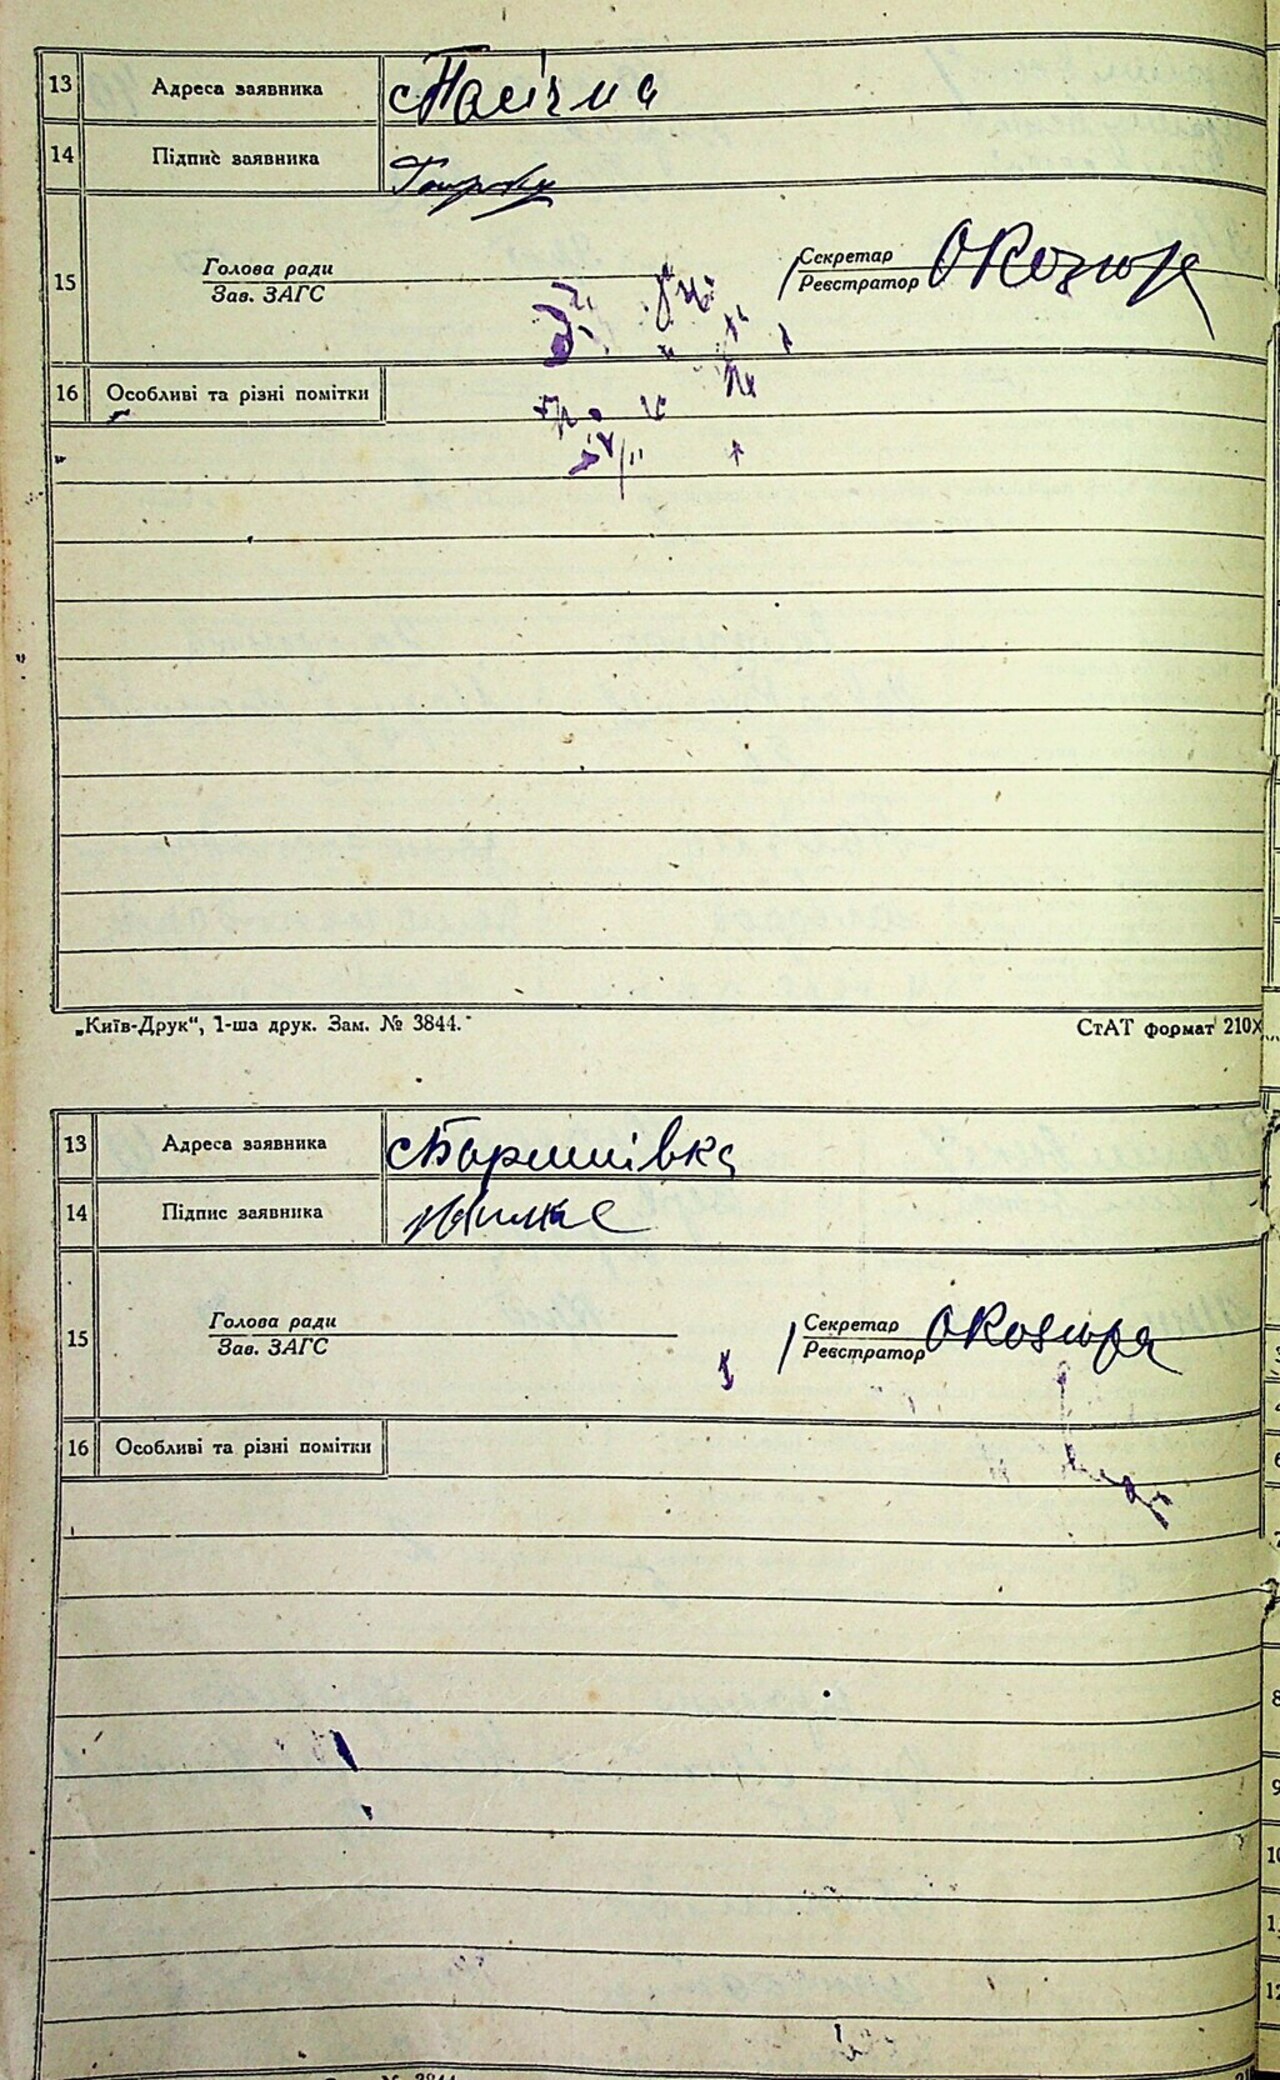 13 Адреса заявника с Пасічна
14 Підпис заявника
15 Голова ради Секретар ОКозюра
Зав. ЗАГС Реєстратор
16 Особливі та різні помітки
„Київ-Друк“, 1-ша друк. Зам. № 3844. СтАТ формат 210X
13 Адреса заявника с Баришівка
14 Підпис заявника
15 Голова ради Секретар ОКозюра
Зав. ЗАГС Реєстратор
16 Особливі та різні помітки